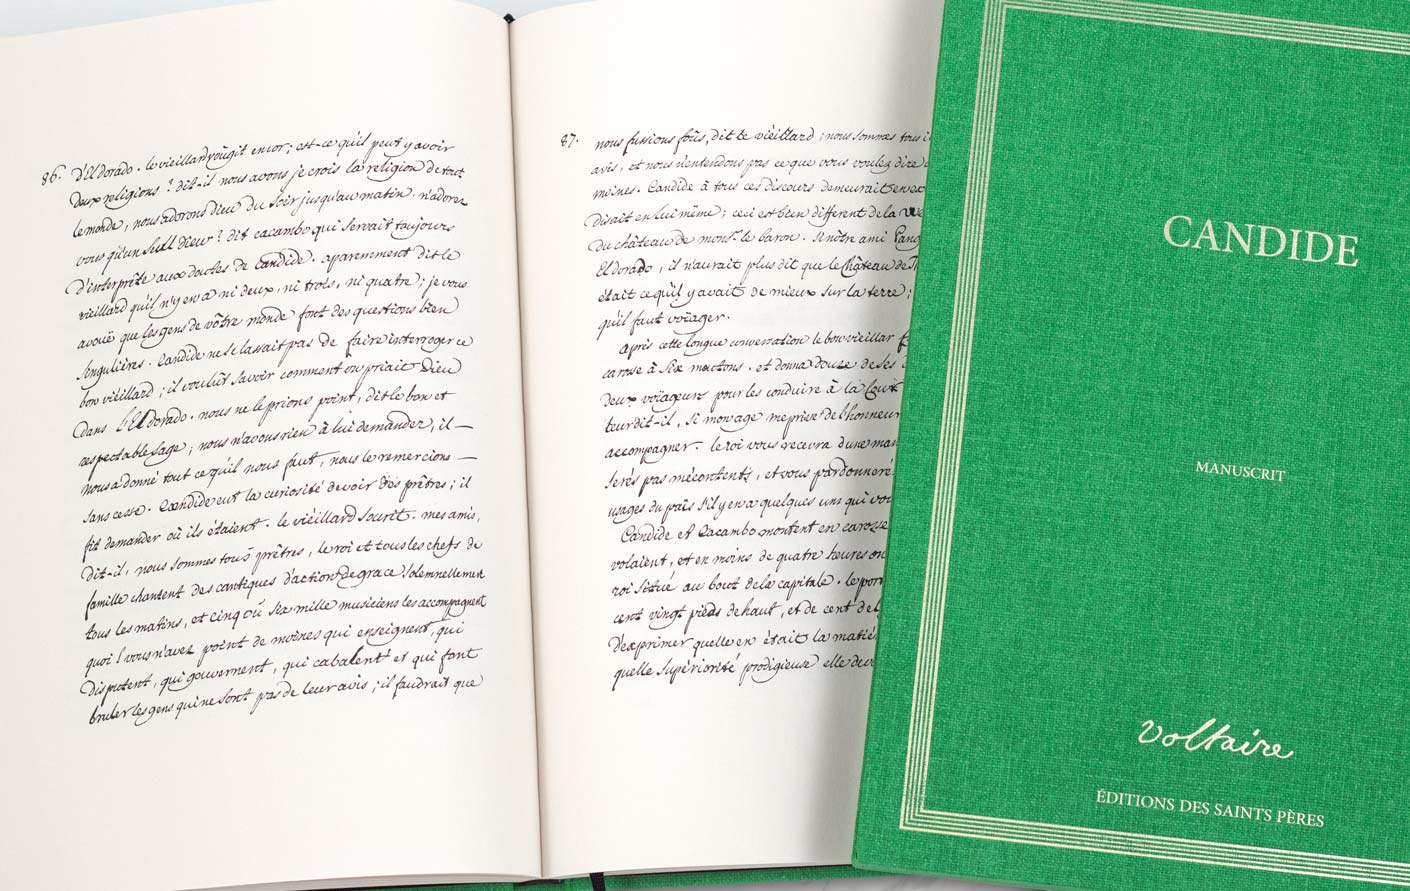 86. D'Eldorado. le vieillard rougit encor; est-ce qu'il peut y avoir
deux religions? dit-il nous avons je crois la religion de tout
le monde, nous adorons dieu du soir jusqu'au matin. n'adorez
vous qu'un seul dieu? dit cacambo qui servait toujours
d'interprète aux doutes de candide. aparemment dit le
vieillard qu'il n'y en a ni deux, ni trois, ni quatre; je vous
avoüe que les gens de vôtre monde font des questions bien
singulières. Candide ne se lassait pas de faire interroger ce
bon vieillard; il voulut savoir comment on priait Dieu
dans l'Eldorado. nous ne le prions point, dit le bon et
respectable sage; nous n'avons rien à lui demander, il —
nous a donné tout ce qu'il nous faut, nous le remercions —
sans cesse. Candide eut la curiosité de voir des prêtres; il
fit demander où ils étaient. le vieillard sourit. mes amis,
dit-il, nous sommes tous prêtres, le roi et tous les chefs de
famille chantent des cantiques d'action de grace solemnellement
tous les matins, et cinq ou six mille musiciens les accompagnent
quoi! vous n'avez point de moines qui enseignent, qui
disputent, qui gouvernent, qui cabalent et qui font
bruler les gens qui ne sont pas de leur avis; il faudrait que
87. nous fussions foûs, dit le vieillard; nous sommes tous i
avis, et nous n'entendons pas ce que vous voulez dire
moines. Candide à tous ces discours demeurait en
disait en lui même; ceci est bien différent de la
du château de monsr. le baron. si nôtre ami Pang
Eldorado, il n'aurait plus dit que le château de
était ce qu'il y avait de mieux sur la terre;
qu'il faut voïager.
Après cette longue conversation le bon vieillar
carosse à six moutons. et donna douze de ses
deux voïageurs pour les conduire à la Cour
teur dit-il, si mon age me prive de l'honneur
accompagner. le roi vous recevra d'une man
serés pas mécontents, et vous pardonneré
usages du païs s'il y en a quelques uns qui vou
Candide et Cacambo montent en carosse
volaient, et en moins de quatre heures on
roi situé au bout de la capitale. le por
cent vingt pieds de haut, et de cent de l
d'exprimer quelle en était la matiè
quelle supériorité prodigieuse elle dev
CANDIDE
MANUSCRIT
Voltaire
ÉDITIONS DES SAINTS PÈRES